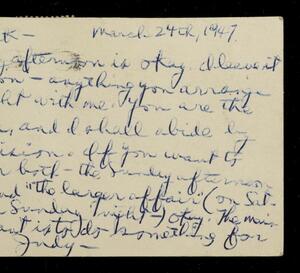 K- March 24th, 1947.
afternoon is okay. I leave it
on - anything you arrange
ht with me. You are the
, and I shall abide by
ision. If you want to
r both - the Sunday afternoon
nd "the larger affair" (on Sat-
Sunday night -) okay. The main
ant is to do something for
Judy -